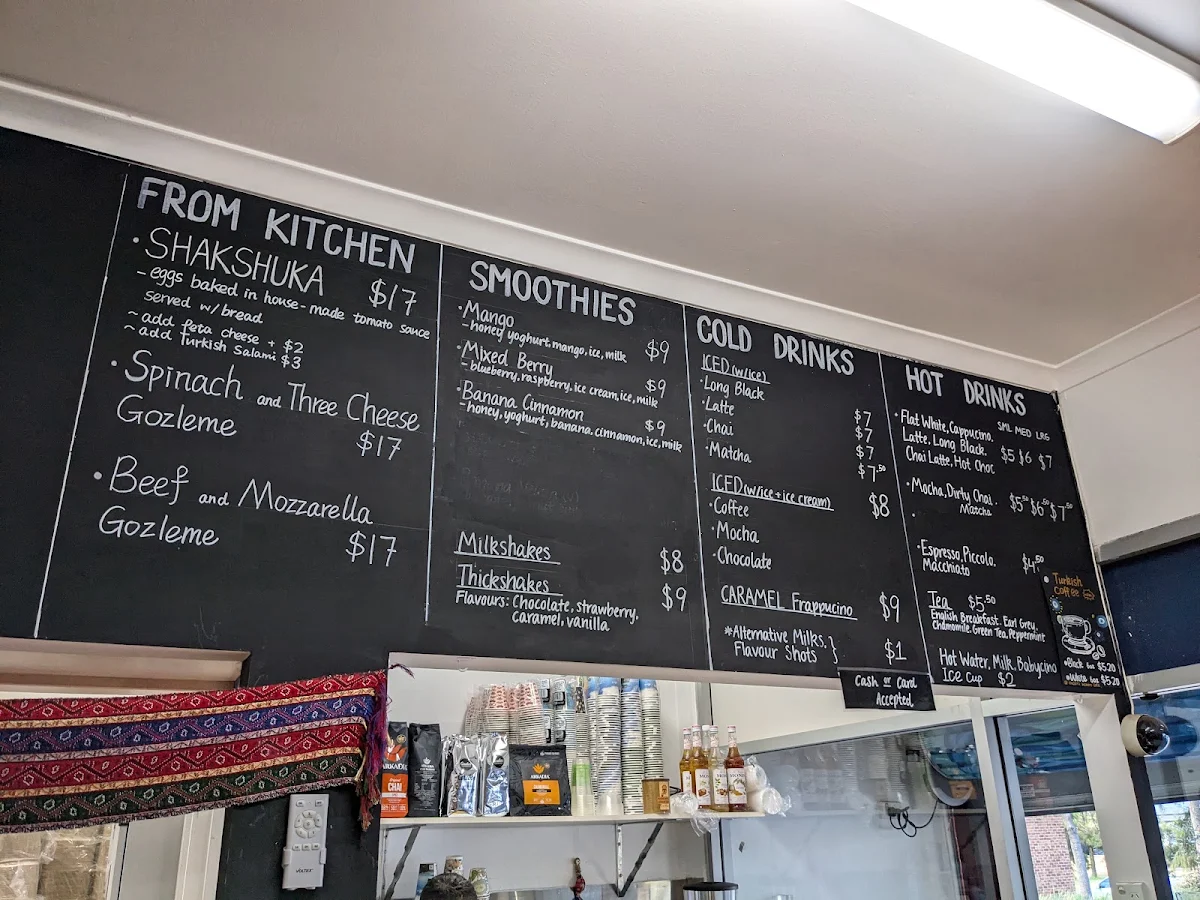 FROM KITCHEN
• SHAKSHUKA $17
- eggs baked in house-made tomato sauce
served w/bread
~ add feta cheese + $2
~ add Turkish Salami $3
• Spinach and Three Cheese
Gozleme $17
• Beef and Mozzarella
Gozleme $17
SMOOTHIES
• Mango
- honey yoghurt, mango, ice, milk $9
• Mixed Berry
- blueberry, raspberry, ice cream, ice, milk $9
• Banana Cinnamon
- honey, yoghurt, banana. cinnamon, ice, milk $9
Milkshakes $8
Thickshakes $9
Flavours: Chocolate, strawberry,
caramel, vanilla
COLD DRINKS
ICED (w/ice)
• Long Black $7
• Latte $7
• Chai $7
• Matcha $7.50
ICED (w/ice + ice cream) $8
• Coffee
• Mocha
• Chocolate
CARAMEL Frappucino $9
*Alternative Milks. }
Flavour Shots } $1
Cash or Card
Accepted
HOT DRINKS
SML MED LRG
• Flat White, Cappucino.
Latte. Long Black. $5 $6 $7
Chai Latte, Hot Choc
• Mocha, Dirty Chai
Matcha $5.50 $6.50 $7.50
• Espresso, Piccolo.
Macchiato $4.50
Tea $5.50
English Breakfast. Earl Grey,
Chamomile. Green Tea. Peppermint
Hot Water, Milk. Babycino
Ice Cup $2
Turkish
Coffee
• Black $5.20
$5.20
ARKADIA
CHAI
ARKADIA